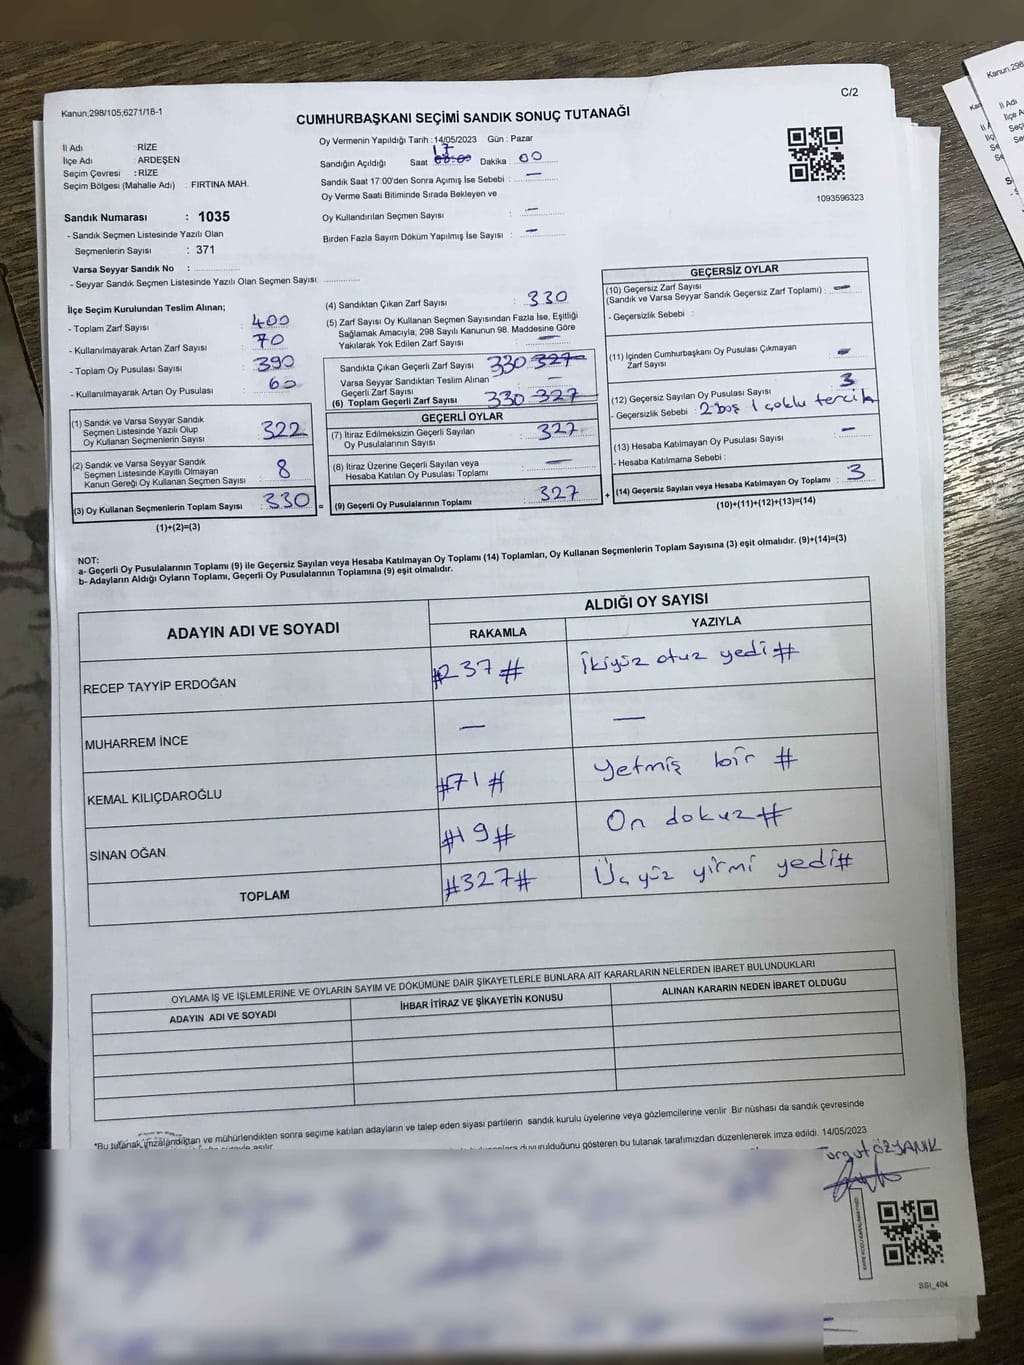 Kanun;298/105;6271/16-1
C/2
CUMHURBAŞKANI SEÇİMİ SANDIK SONUÇ TUTANAĞI
İl Adı : RİZE
İlçe Adı : ARDEŞEN
Seçim Çevresi : RİZE
Seçim Bölgesi (Mahalle Adı) : FIRTINA MAH.
Sandık Numarası : 1035
- Sandık Seçmen Listesinde Yazılı Olan
Seçmenlerin Sayısı : 371
Varsa Seyyar Sandık No : ....................
- Seyyar Sandık Seçmen Listesinde Yazılı Olan Seçmen Sayısı: ............
Oy Vermenin Yapıldığı Tarih : 14/05/2023 Gün : Pazar
Sandığın Açıldığı Saat 17 Dakika : 00
Sandık Saat 17:00'den Sonra Açımış İse Sebebi : —
Oy Verme Saati Bitiminde Sırada Bekleyen ve
Oy Kullandırılan Seçmen Sayısı : —
Birden Fazla Sayım Döküm Yapılmış İse Sayısı : —
1093596323
İlçe Seçim Kurulundan Teslim Alınan;
- Toplam Zarf Sayısı : 400
- Kullanılmayarak Artan Zarf Sayısı : 70
- Toplam Oy Pusulası Sayısı : 390
- Kullanılmayarak Artan Oy Pusulası : 60
(1) Sandık ve Varsa Seyyar Sandık
Seçmen Listesinde Yazılı Olup
Oy Kullanan Seçmenlerin Sayısı : 322
(2) Sandık ve Varsa Seyyar Sandık
Seçmen Listesinde Kayıtlı Olmayan
Kanun Gereği Oy Kullanan Seçmen Sayısı : 8
(3) Oy Kullanan Seçmenlerin Toplam Sayısı : 330
(1)+(2)=(3)
(4) Sandıktan Çıkan Zarf Sayısı : 330
(5) Zarf Sayısı Oy Kullanan Seçmen Sayısından Fazla İse, Eşitliği
Sağlamak Amacıyla; 298 Sayılı Kanunun 98. Maddesine Göre
Yakılarak Yok Edilen Zarf Sayısı : —
Sandıkta Çıkan Geçerli Zarf Sayısı : 330 327
Varsa Seyyar Sandıktan Teslim Alınan
Geçerli Zarf Sayısı : —
(6) Toplam Geçerli Zarf Sayısı : 330 327
GEÇERLİ OYLAR
(7) İtiraz Edilmeksizin Geçerli Sayılan
Oy Pusulalarının Sayısı : 327
(8) İtiraz Üzerine Geçerli Sayılan veya
Hesaba Katılan Oy Pusulası Toplamı : —
(9) Geçerli Oy Pusulalarının Toplamı : 327
GEÇERSİZ OYLAR
(10) Geçersiz Zarf Sayısı
(Sandık ve Varsa Seyyar Sandık Geçersiz Zarf Toplamı) : —
- Geçersizlik Sebebi :
(11) İçinden Cumhurbaşkanı Oy Pusulası Çıkmayan
Zarf Sayısı : —
(12) Geçersiz Sayılan Oy Pusulası Sayısı : 3
- Geçersizlik Sebebi : 2 boş 1 çoklu tercih
(13) Hesaba Katılmayan Oy Pusulası Sayısı : —
- Hesaba Katılmama Sebebi :
(14) Geçersiz Sayılan veya Hesaba Katılmayan Oy Toplamı : 3
(10)+(11)+(12)+(13)=(14)
NOT:
a- Geçerli Oy Pusulalarının Toplamı (9) ile Geçersiz Sayılan veya Hesaba Katılmayan Oy Toplamı (14) Toplamları, Oy Kullanan Seçmenlerin Toplam Sayısına (3) eşit olmalıdır. (9)+(14)=(3)
b- Adayların Aldığı Oyların Toplamı, Geçerli Oy Pusulalarının Toplamına (9) eşit olmalıdır.
ADAYIN ADI VE SOYADI
ALDIĞI OY SAYISI
RAKAMLA YAZIYLA
RECEP TAYYİP ERDOĞAN #237# İkiyüz otuz yedi#
MUHARREM İNCE — —
KEMAL KILIÇDAROĞLU #71# Yetmiş bir #
SİNAN OĞAN #19# On dokuz#
TOPLAM #327# Üç yüz yirmi yedi#
OYLAMA İŞ VE İŞLEMLERİNE VE OYLARIN SAYIM VE DÖKÜMÜNE DAİR ŞİKAYETLERLE BUNLARA AİT KARARLARIN NELERDEN İBARET BULUNDUKLARI
ADAYIN ADI VE SOYADI İHBAR İTİRAZ VE ŞİKAYETİN KONUSU ALINAN KARARIN NEDEN İBARET OLDUĞU
*Bu tutanak imzalandıktan ve mühürlendikten sonra seçime katılan adayların ve talep eden siyasi partilerin sandık kurulu üyelerine veya gözlemcilerine verilir. Bir nüshası da sandık çevresinde
duyurulduğunu gösteren bu tutanak tarafımızdan düzenlenerek imza edildi. 14/05/2023
Turgut ÖZYANIK
SSI_404